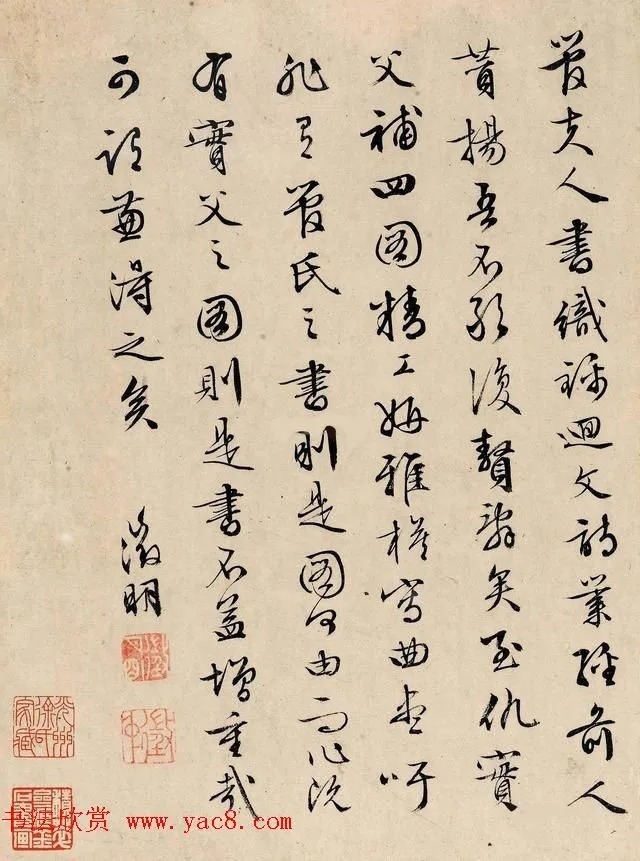 管夫人書織錦迴文詩業經前人
贊揚吾不能復贅辭矣至仇實
父補四圖精工妍雅模寫曲盡吁
非有管氏之書則是圖何由而作既
有實父之圖則是書不益增重哉
可謂兼得之矣
徵明
书法欣赏 www.yac8.com